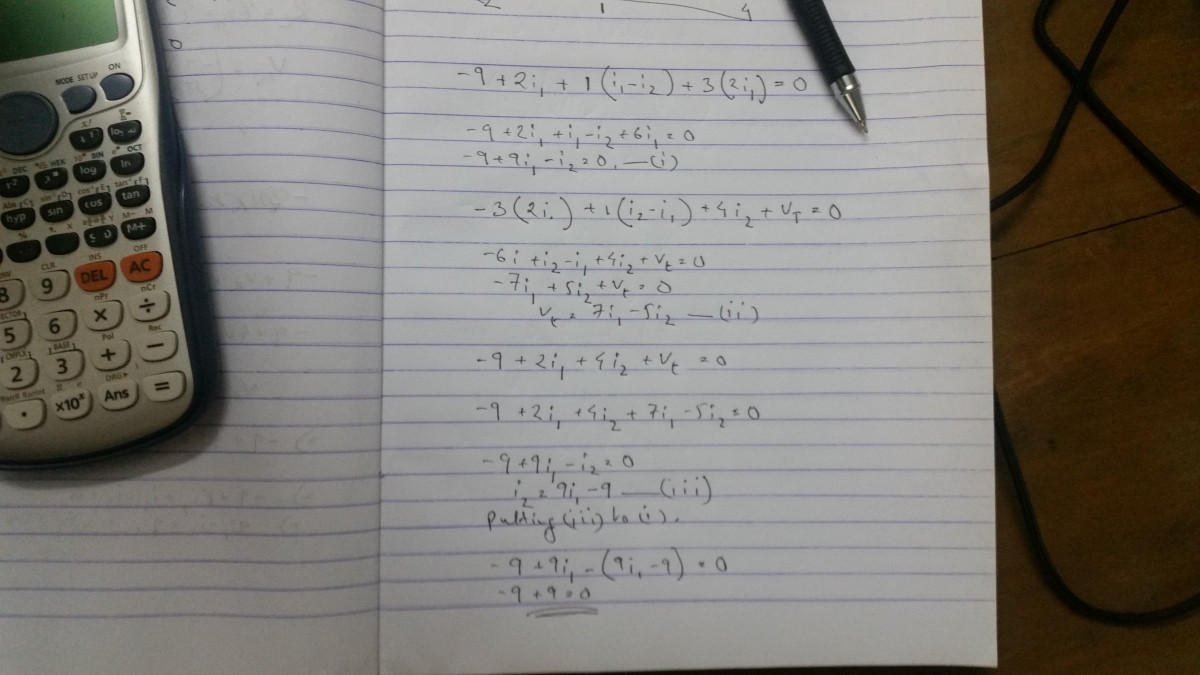 2 1 4
-9 + 2i₁ + 1(i₁-i₂) + 3(2i₁) = 0
-9 + 2i₁ + i₁ - i₂ + 6i₁ = 0
-9 + 9i₁ - i₂ = 0. —(i)
-3(2i.) + 1(i₂-i₁) + 4i₂ + V_T = 0
-6i + i₂ - i₁ + 4i₂ + V_t = 0
-7i₁ + 5i₂ + V_t = 0
V_t = 7i₁ - 5i₂ —(ii)
-9 + 2i₁ + 4i₂ + V_t = 0
-9 + 2i₁ + 4i₂ + 7i₁ - 5i₂ = 0
-9 + 9i₁ - i₂ = 0
i₂ = 9i₁ - 9 —(iii)
Putting (iii) to (i).
-9 + 9i₁ - (9i₁ - 9) = 0
-9 + 9 = 0
MODE SETUP ON
x! 
DEC HEX BIN OCT
log ln
hyp sin cos tan
M- M
M+
CLR INS OFF
8 9 DEL AC
nPr nCr
5 6 × ÷
Pol Rec
2 3 + -
DRG▸
· ×10ˣ Ans =